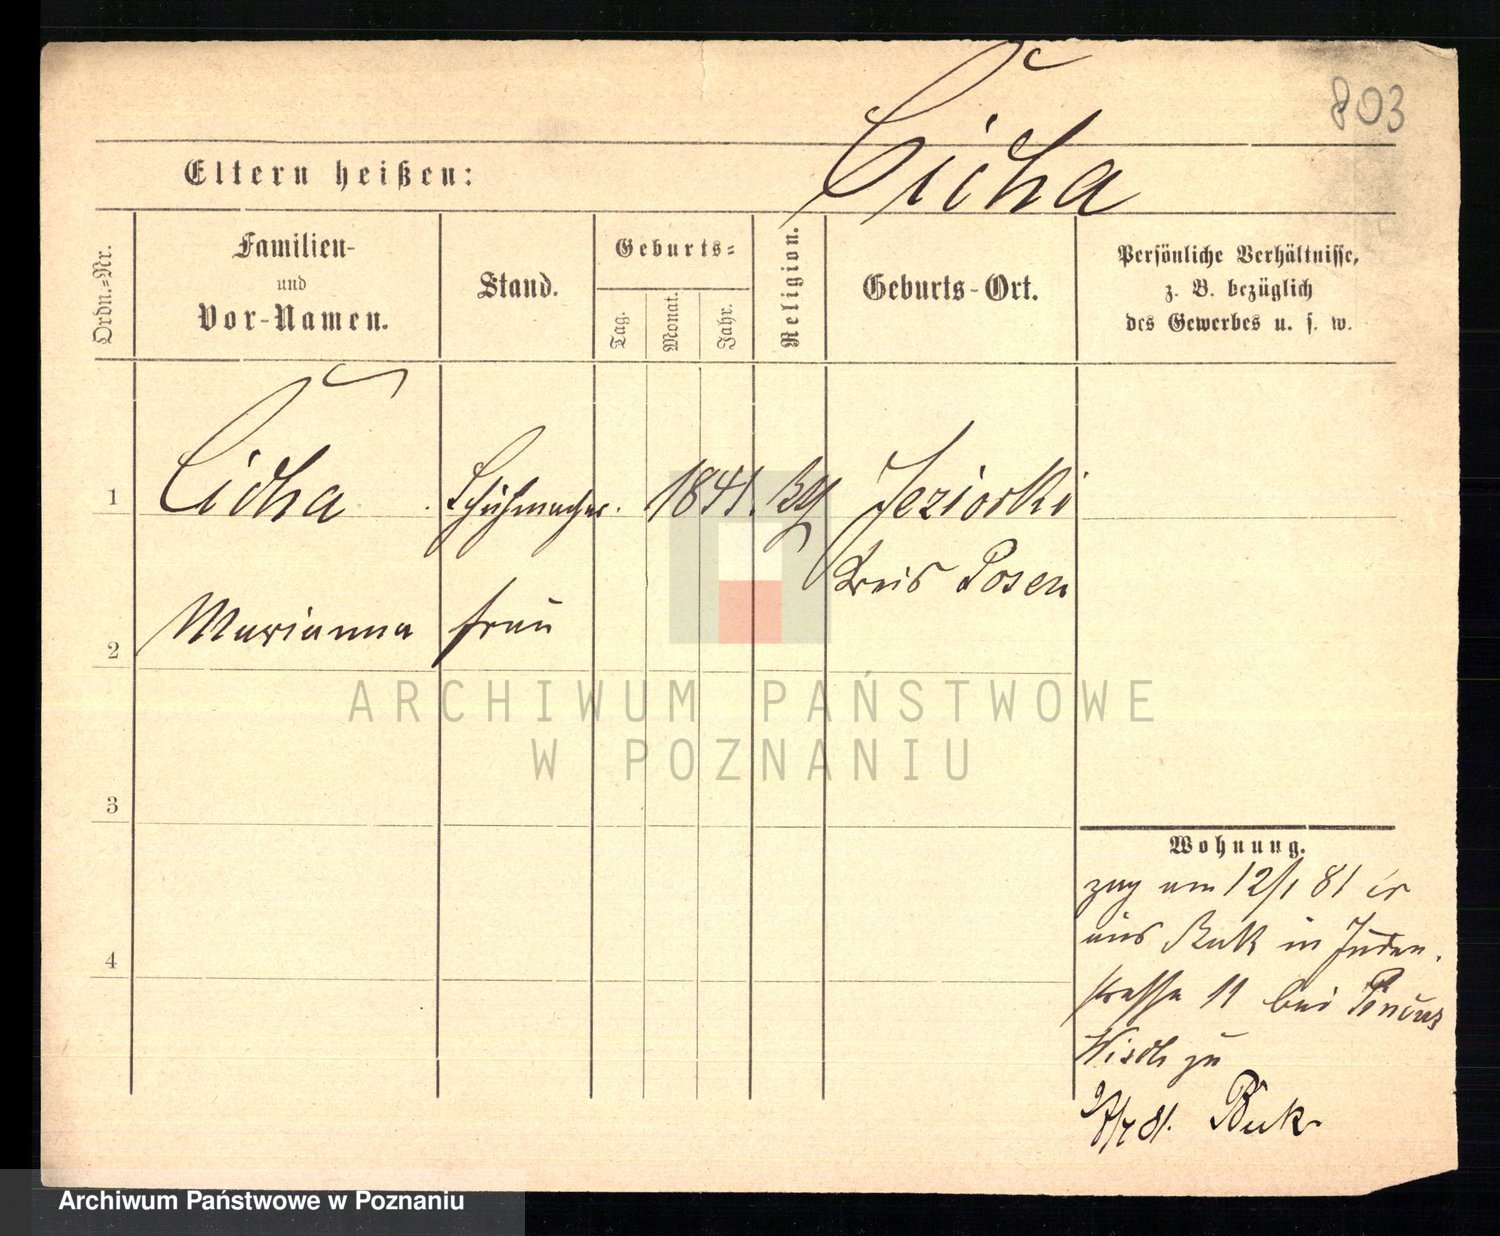 803
Cicha
Eltern heißen:
Ordn.-Nr.
Familien-
und
Vor-Namen.
Stand.
Geburts-
Tag.
Monat.
Jahr.
Religion.
Geburts-Ort.
Persönliche Verhältnisse,
z. B. bezüglich
des Gewerbes u. s. w.
1
Cicha
Schuhmacher
1841.
Jeziorki
Kreis Posen
2
Marianna
frau
3
4
Wohnung.
zug am 12/1 81
aus Buk in Juden-
strasse 11 bei Pincus
zu
81. Buk
ARCHIWUM PAŃSTWOWE
W POZNANIU
Archiwum Państwowe w Poznaniu